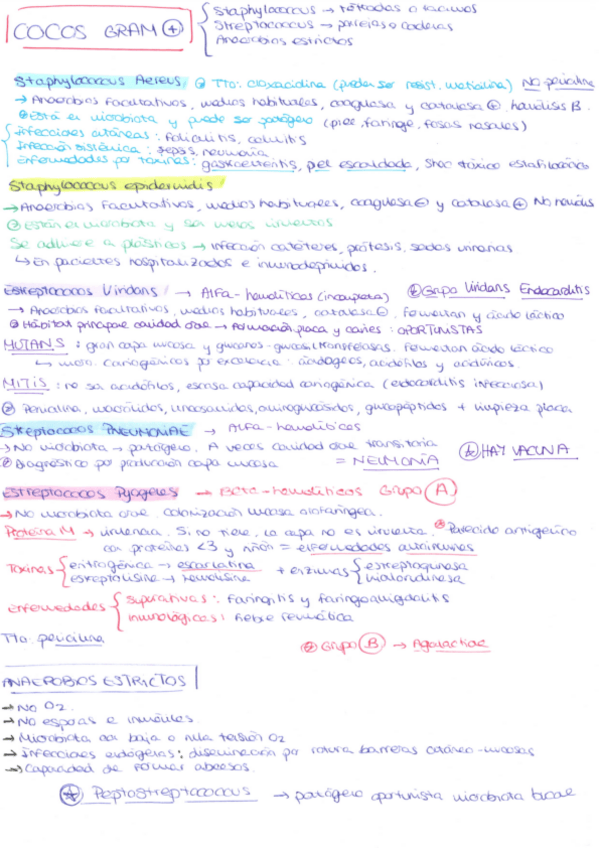 COCOS GRAM (+)
Staphylococcus → tétradas o racimos
Streptococcus → parejas o cadenas
Anaerobios estrictos
Staphylococcus Aereus ⊙ Tto: cloxacidina (pueden ser resist. meticilina) No penicilina
→ Anaerobios facultativos, medios habituales, coagulasa y catalasa ⊕ hemólisis B.
Está en microbiota y puede ser patógeno (piel, faringe, fosas nasales)
Infecciones cutáneas: foliculitis, celulitis
Infección sistémica: sepsis, neumonía
Enfermedades por toxinas: gastroenteritis, piel escaldada, Shoc tóxico estafilocócico
Staphylococcus epidermidis
→ Anaerobios facultativos, medios habituales, coagulasa ⊖ y catalasa ⊕ No hemólisis
Están en microbiota y son menos virulentos
Se adhiere a plásticos → infección catéteres, prótesis, sondas urinarias
↳ En pacientes hospitalizados e inmunodeprimidos.
Estreptococos Viridans → Alfa-hemolíticos (incompleta) Grupo Viridans Endocarditis
→ Anaerobios facultativos, medios habituales, catalasa ⊖. Fermentan y ácido láctico
Hábitat principal cavidad oral → Formación placa y caries: OPORTUNISTAS
MUTANS: gran capa mucosa y glucanos-glucosiltransferasas. Fermentan ácido láctico
↳ micro. cariogénicos por excelencia: acidogeos, acidófilos y acidúricos.
MITIS: no son acidófilos, escasa capacidad cariogénica (endocarditis infecciosa)
Penicilina, macrólidos, lincosamidas, aminoglucósidos, glucopéptidos + limpieza placa
Streptococcos PNEUMONIAE → Alfa-hemolíticos
→ No microbiota → patógeno. A veces cavidad oral transitoria
Diagnóstico por producción capa mucosa = NEUMONÍA
HAY VACUNA
Estreptococos Pyogenes → Beta-hemolíticos Grupo (A)
→ No microbiota oral. colonización mucosa orofaríngea.
Proteína M → virulencia. Si no tiene, la capa no es virulenta. Parecido antigénico
con proteínas <3 y riñón = enfermedades autoinmunes
Toxinas
eritrogénica → escarlatina
estreptolisina → hemolisina
+ enzimas
estreptoquinasa
hialorudinasa
Enfermedades
supurativas: Faringitis y faringoamigdalitis
inmunológicas: fiebre reumática
Tto. penicilina
Grupo (B) → Agalactiae
ANAEROBIOS ESTRICTOS
→ No O2.
→ No esporas e inmóviles.
→ Microbiota con baja o nula tensión O2
→ Infecciones endógenas: diseminación por rotura barreras cutáneo-mucosas
→ Capacidad de formar abcesos.
Peptostreptococcus → patógeno oportunista microbiota bucal